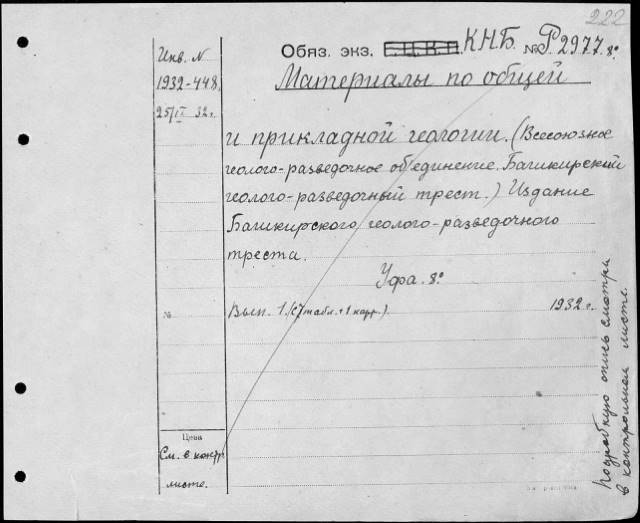 222
Инв. N
1932-448.
25/IV 32 г.
Обяз. экз. Г.Ц.К.П. К.Н.Б. № Р2977. 8°
Материалы по общей
и прикладной геологии. (Всесоюзное
геолого-разведочное объединение. Башкирский
геолого-разведочный трест.) Издание
Башкирского геолого-разведочного
треста.
Уфа. 8°
№ Вып. 1. (с 7 табл. + 1 карт.). 1932 г.
Цена
См. в контр.
листе.
подробную опись смотри
в контрольном листе.